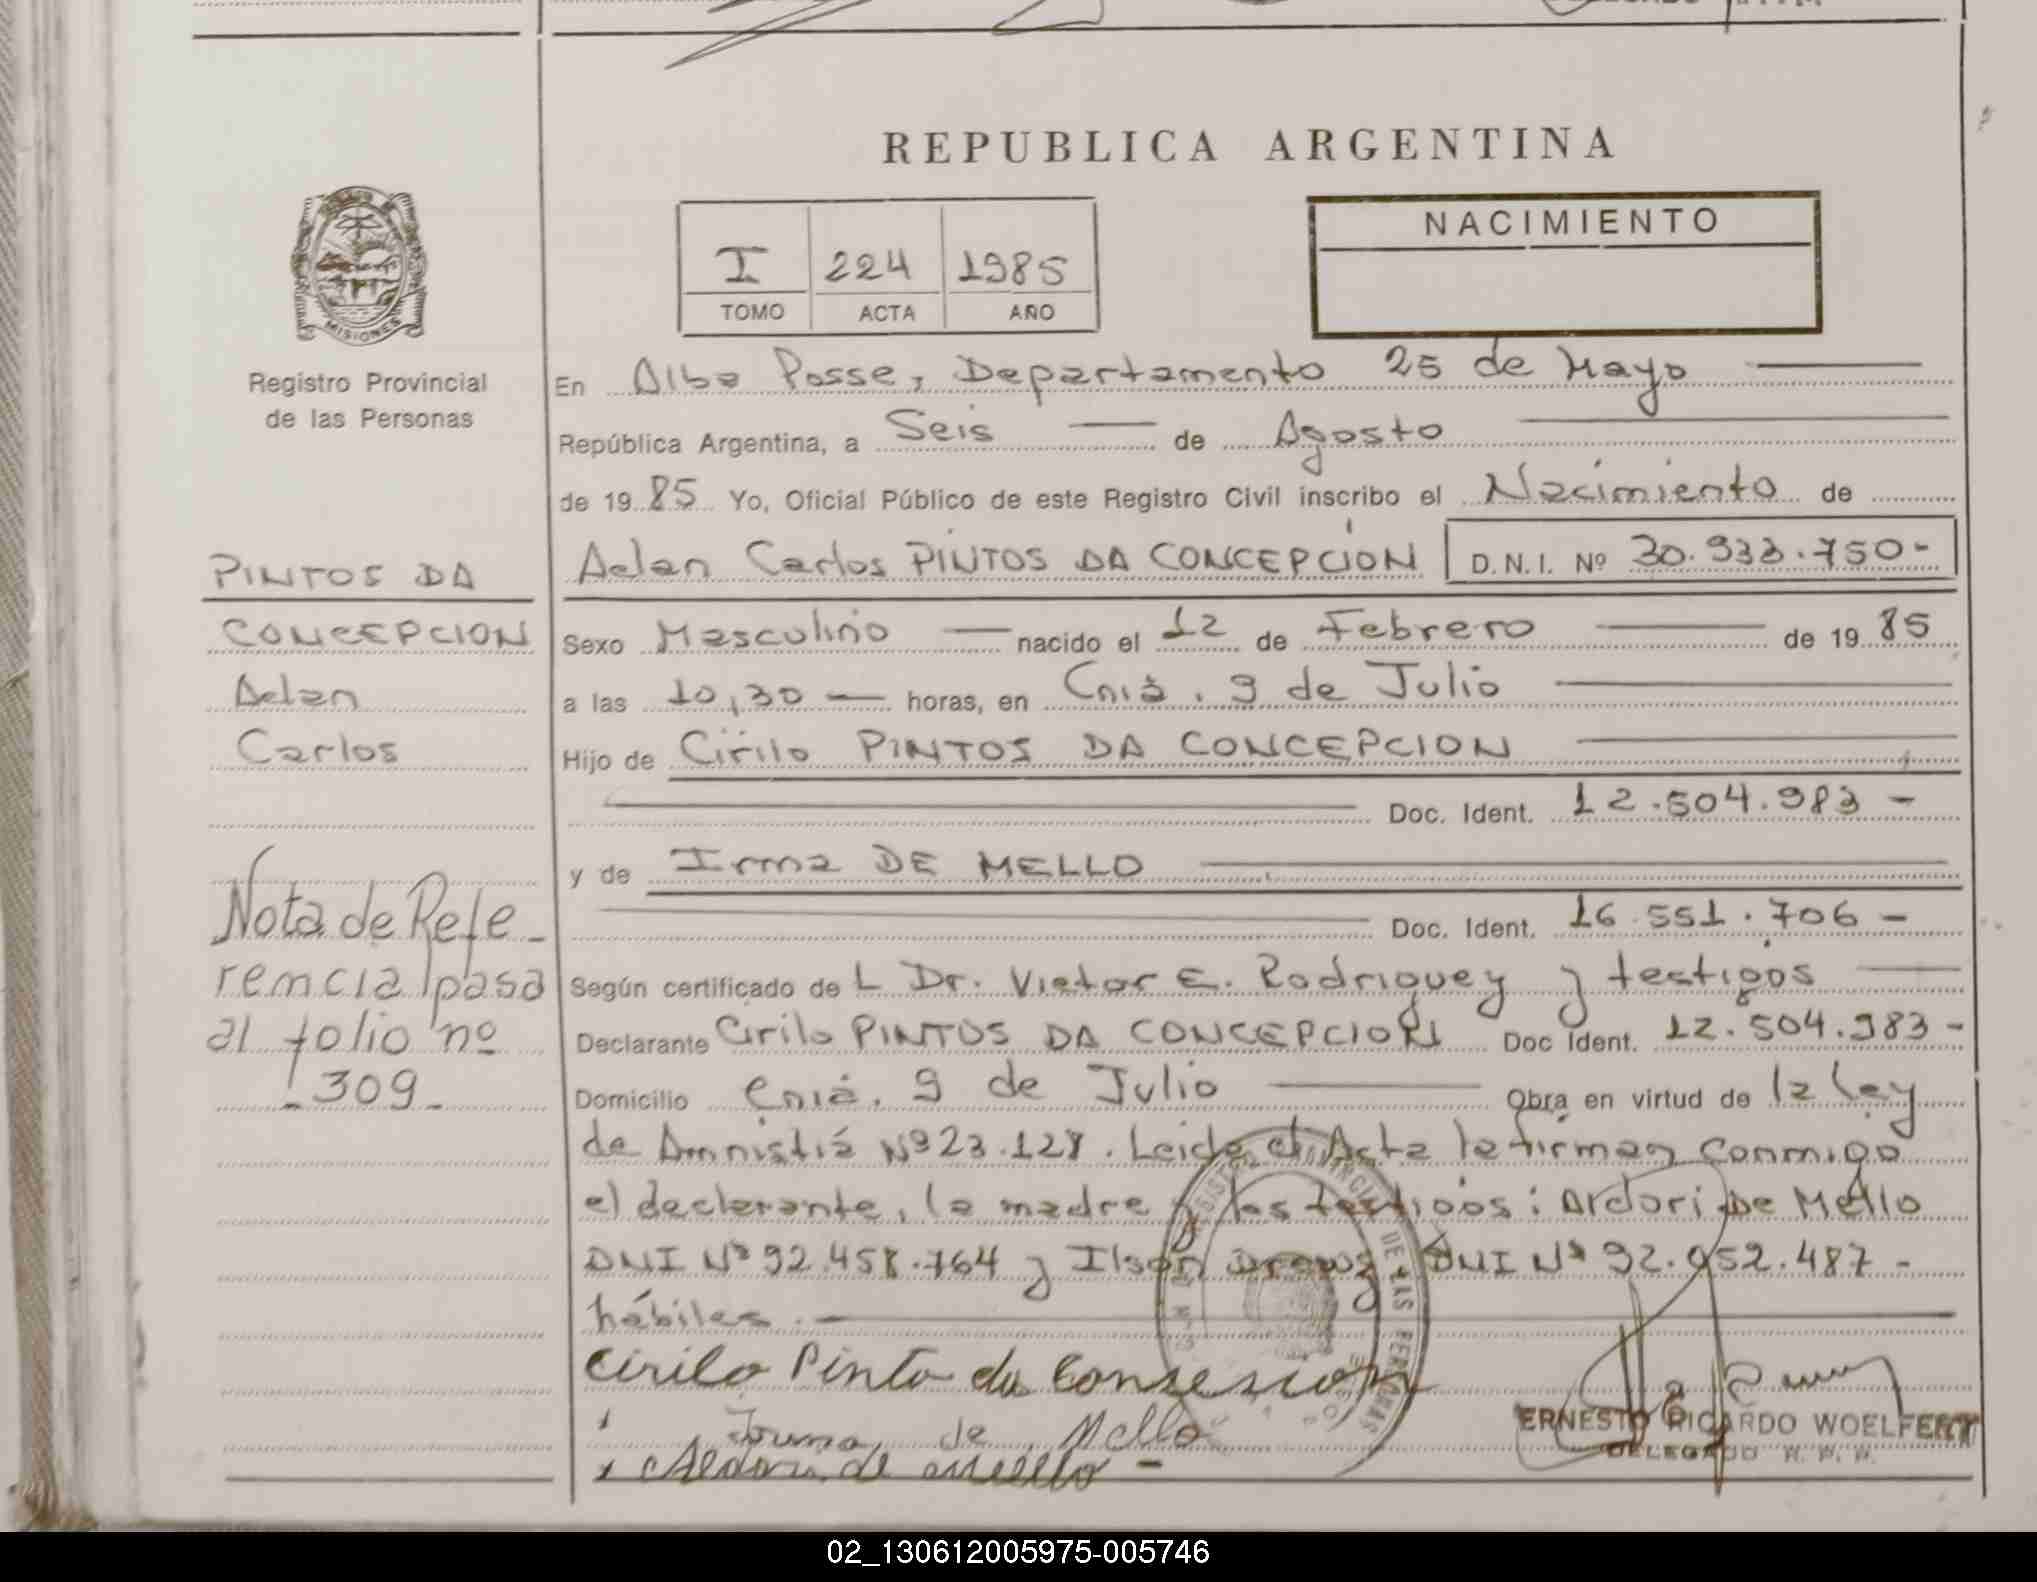 REPUBLICA ARGENTINA
MISIONES
Registro Provincial
de las Personas
I 224 1985
TOMO ACTA AÑO
NACIMIENTO
En Alba Posse, Departamento 25 de Mayo
República Argentina, a Seis de Agosto
de 19 85 Yo, Oficial Público de este Registro Civil inscribo el Nacimiento de
Adan Carlos PINTOS DA CONCEPCION D.N.I. Nº 30.933.750-
PINTOS DA
CONCEPCION
Adan
Carlos
Sexo Masculino nacido el 12 de Febrero de 19 85
a las 10,30 horas, en Cniá. 9 de Julio
Hijo de Cirilo PINTOS DA CONCEPCION
Doc. Ident. 12.504.983 -
y de Irma DE MELLO
Doc. Ident. 16.551.706 -
Nota de Refe-
rencia pasa
al folio nº
-309-
Según certificado de L Dr. Victor E. Rodriguez y testigos
Declarante Cirilo PINTOS DA CONCEPCION Doc Ident. 12.504.983-
Domicilio Cniá. 9 de Julio Obra en virtud de la Ley
de Amnistiá Nº 23.128. Leida el Acta la firman conmigo
el declarante, la madre y los testigos: Ardori De Mello
DNI Nº 92.458.764 y Ilson DNI Nº 92.952.487 -
hábiles.
Cirilo Pinto da Consescion
Irma de Mello
de Mello -
ERNESTO RICARDO WOELFERT
DELEGADO R. P. P.
02_130612005975-005746